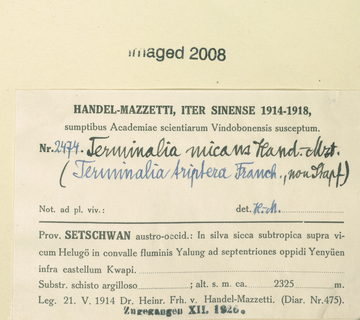 imaged 2008
HANDEL-MAZZETTI, ITER SINENSE 1914-1918,
sumptibus Academiae scientiarum Vindobonensis susceptum.
Nr. 2474. Terminalia micans Hand.-Mzt.
(Terminalia triptera Franch., non Stapf)
Not. ad pl. viv.: det. H.-M.
Prov. SETSCHWAN austro-occid.: In silva sicca subtropica supra vi-
cum Helugö in convalle fluminis Yalung ad septentriones oppidi Yenyüen
infra castellum Kwapi.
Substr. schisto argilloso ; alt. s. m. ca. 2325 m.
Leg. 21. V. 1914 Dr. Heinr. Frh. v. Handel-Mazzetti. (Diar. Nr. 475).
Zugegangen XII. 1926.